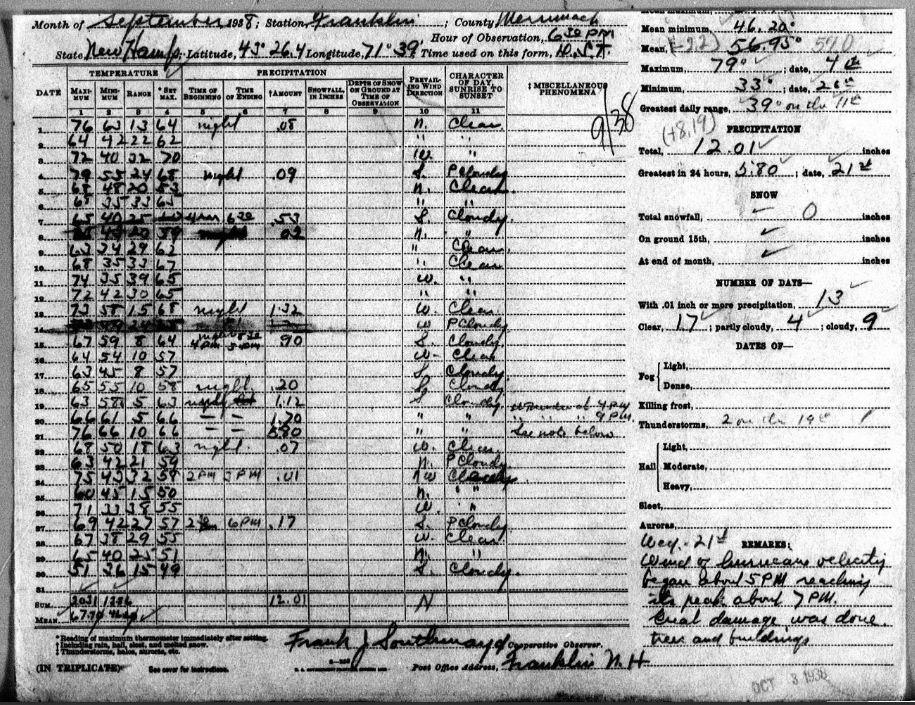 Month of September 1938; Station, Franklin; County, Merrimack
Hour of Observation, 6 30 PM
State, New Hamp. Latitude, 43° 26.4 Longitude, 71° 39. Time used on this form, D.S.T.
DATE TEMPERATURE PRECIPITATION PREVAILING WIND DIRECTION CHARACTER OF DAY SUNRISE TO SUNSET ‡ MISCELLANEOUS PHENOMENA
MAXIMUM MINIMUM RANGE * SET MAX. TIME OF BEGINNING TIME OF ENDING † AMOUNT SNOWFALL, IN INCHES DEPTH OF SNOW ON GROUND AT TIME OF OBSERVATION
1 2 3 4 5 6 7 8 9 10 11
9/38
1 76 63 13 64 night .08 N. Clear
2 64 42 22 62 " "
3 72 40 32 70 W. "
4 79 55 24 68 night .09 S. P Cloudy
5 68 48 20 N. Clear
6 33 65 " "
7 65 40 25 6 30 .53 S. Cloudy
8 .02 N. "
9 63 34 29 63 " Clear
10 68 35 33 67 " Clear
11 74 35 39 65 W. "
12 72 42 30 65 " "
13 73 58 15 68 night 1.32 W. Clear
14 W P Cloudy
15 67 59 8 64 4 PM 5 PM .90 S. Cloudy
16 64 54 10 57 W. Clear
17 8 57 S. Cloudy
18 65 55 10 58 night .20 S. Cloudy
19 63 58 5 63 1.12 S Cloudy Thunder at 4 PM
20 66 61 5 66 — — 1.70 " " " 9 PM
21 76 66 10 66 — — 5.80 " " See note below
22 68 50 18 63 night .07 W. Clear
23 63 42 21 59 N. P Cloudy
24 75 43 32 59 2 PM 3 PM .01 NW
25 60 45 15 50 N. " "
26 71 33 38 55 W. "
27 69 42 27 57 6 PM .17 S. P Cloudy
28 67 38 29 55 W. Clear
29 65 40 25 51 N. "
30 51 36 15 49 S. Cloudy
31
SUM 2031 1386 12.01 N
MEAN 67.70
* Reading of maximum thermometer immediately after setting.
† Including rain, hail, sleet, and melted snow.
‡ Thunderstorms, halos, auroras, etc.
Frank J Southmayd Cooperative Observer.
(IN TRIPLICATE) See cover for instructions. Post Office Address, Franklin N. H
Mean minimum, 46.20°
Mean, (-2.2) 56.95° 57.0
Maximum, 79°; date, 4th
Minimum, 33°; date, 26th
Greatest daily range, 39° on the 11th
(+8.19) PRECIPITATION
Total, 12.01 inches
Greatest in 24 hours, 5.80; date, 21st
SNOW
Total snowfall, 0 inches
On ground 15th, inches
At end of month, inches
NUMBER OF DAYS—
With .01 inch or more precipitation, 13
Clear, 17; partly cloudy, 4; cloudy, 9
DATES OF—
Fog Light,
Dense,
Killing frost,
Thunderstorms, 2 on the 19th
Hail Light,
Moderate,
Heavy,
Sleet,
Auroras,
REMARKS:
Wed. - 21st
Wind of hurricane velocity
began about 5 PM reaching
its peak about 7 PM.
Great damage was done
trees and buildings
OCT 3 1938